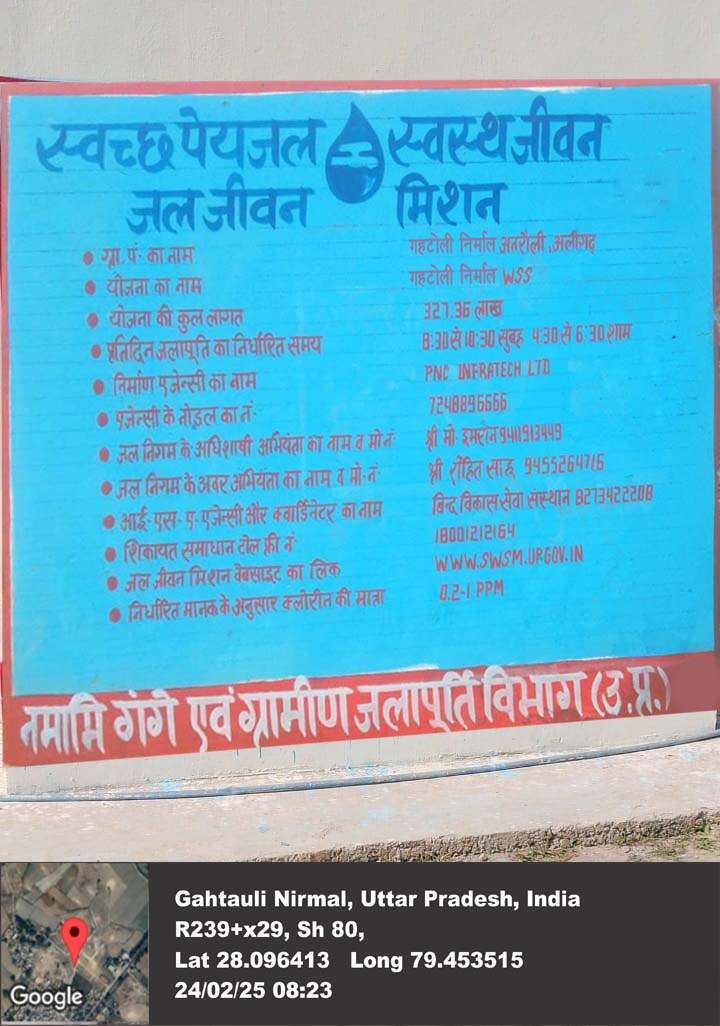 स्वच्छ पेयजल स्वस्थ जीवन
जल जीवन मिशन
ग्रा. पं. का नाम गहटोली निर्मल अतरौली, अलीगढ़
योजना का नाम गहटोली निर्मल WSS
योजना की कुल लागत 327.36 लाख
प्रतिदिन जलापूर्ति का निर्धारित समय 8:30 से 10:30 सुबह 4:30 से 6:30 शाम
निर्माण एजेन्सी का नाम PNC INFRATECH LTD
एजेन्सी के नोडल का नं. 7248896666
जल निगम के अधिशाषी अभियंता का नाम व मो नं. श्री मो. इमरान 9411913449
जल निगम के अवर अभियंता का नाम व मो. नं. श्री रोहित साहू 9455264716
आई. एस. ए. एजेन्सी और क्वार्डिनेटर का नाम बिन्द विकास सेवा संस्थान 8273422208
शिकायत समाधान टोल फ्री नं. 18001212164
जल जीवन मिशन वेबसाइट का लिंक WWW.SWSM.UP.GOV.IN
निर्धारित मानक के अनुसार क्लोरीन की मात्रा 0.2-1 PPM
नमामि गंगे एवं ग्रामीण जलापूर्ति विभाग (उ.प्र.)
Gahtauli Nirmal, Uttar Pradesh, India
R239+x29, Sh 80,
Lat 28.096413 Long 79.453515
24/02/25 08:23
Google